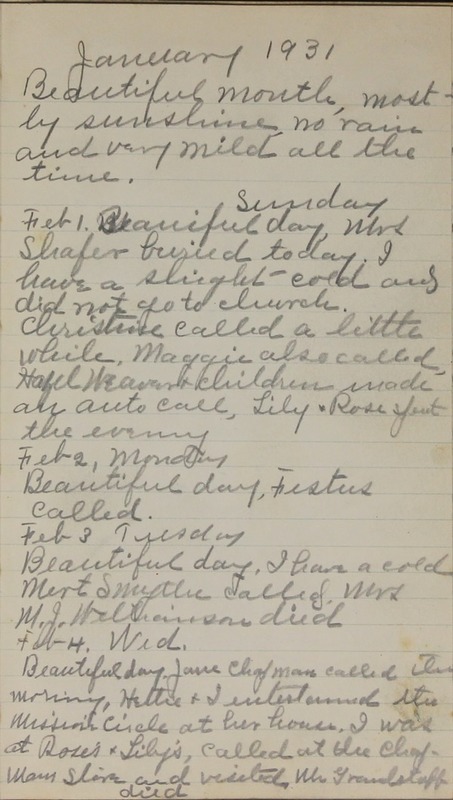 January 1931
Beautiful month, most-
ly sunshine, no rain
and very mild all the
time.
Sunday
Feb 1. Beauiful day, Mrs
Shafer buried today. I
have a slight cold and
did not go to church.
Christine called a little
while, Maggie also called,
Hazel Weaver + children made
an auto call, Lily + Rose spent
the evening
Feb 2, Monday
Beautiful day, Festus
called.
Feb 3 Tuesday
Beautiful day. I have a cold
Mert Smythe called. Mrs
M. J. Williamson died
Feb 4. Wed.
Beautiful day, Jane Chapman called this
morning, Hettie + I entertained the
Mission Circle at her house. I was
at Rose's + Lily's, called at the Chap-
man Store and visited, Mr Grandstaff
died